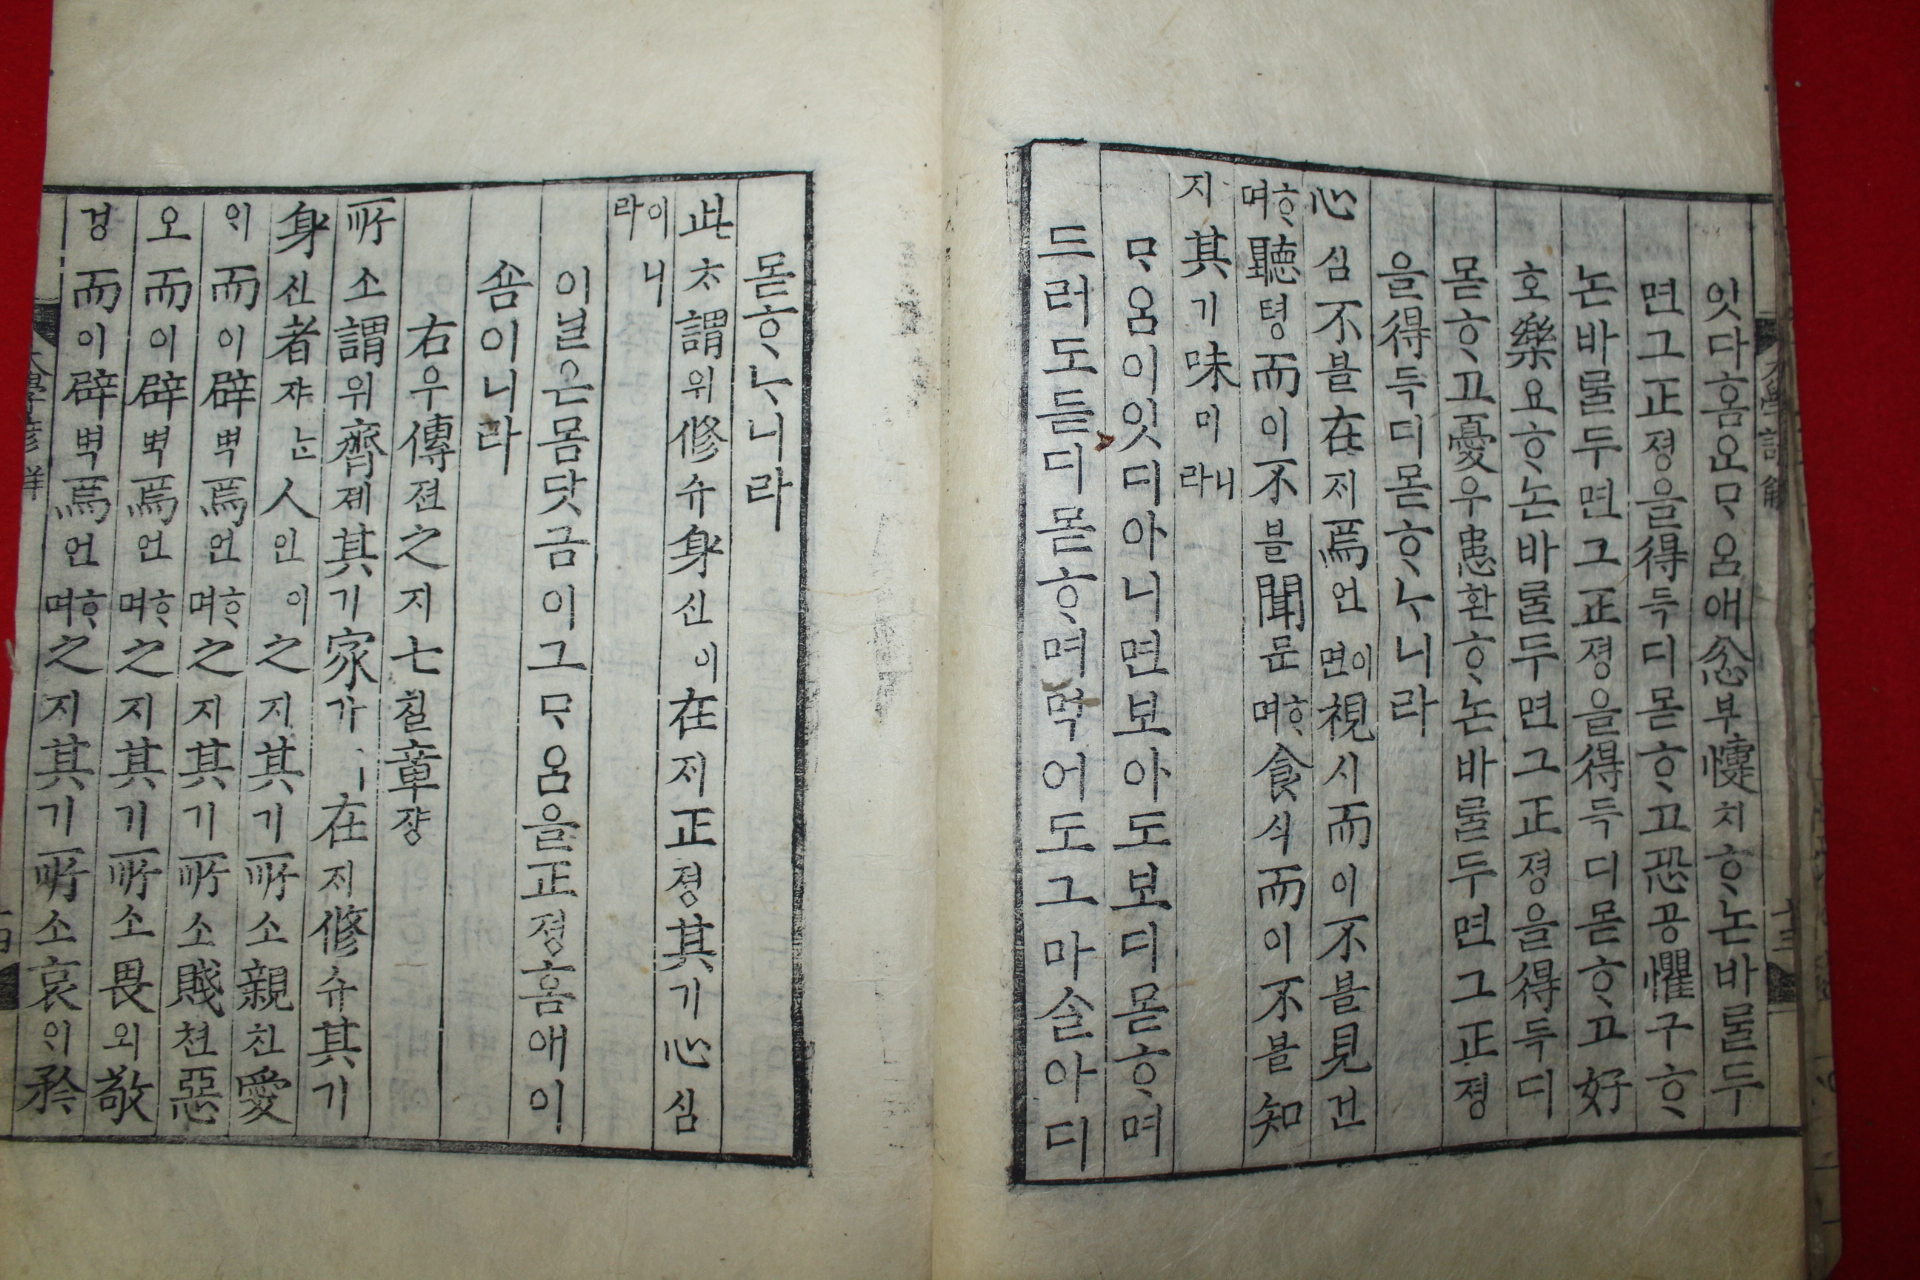 잇다홈오ᄆᆞ움애忿부懥치ᄒᆞ논바ᄅᆞᆯ두
면그正졍을得득디몯ᄒᆞ고恐공懼구ᄒᆞ
논바ᄅᆞᆯ두면그正졍을得득디몯ᄒᆞ고好
호樂요ᄒᆞ논바ᄅᆞᆯ두면그正졍을得득디
몯ᄒᆞ고憂우患환ᄒᆞ논바ᄅᆞᆯ두면그正졍
을得득디몯ᄒᆞᄂᆞ니라
心심不블在ᄌᆡ焉언이면視시而이不블見견
ᄒᆞ며聽텽而이不블聞문ᄒᆞ며食식而이不블知
지其기味미니라
ᄆᆞ움이잇디아니면보아도보디몯ᄒᆞ며
드러도듣디몯ᄒᆞ며먹어도그마슬아디
몯ᄒᆞᄂᆞ니라
此ᄎᆞ謂위修슈身신이在ᄌᆡ正졍其기心심
이니라
이닐온몸닷금이그ᄆᆞ움을正졍홈애이
숌이니라
右우傳젼之지七칠章쟝
所소謂위齊졔其기家가ㅣ在ᄌᆡ修슈其기
身신者쟈ᄂᆞᆫ人인이之지其기所소親친愛
ᄋᆡ而이辟벽焉언ᄒᆞ며之지其기所소賤쳔惡
오而이辟벽焉언ᄒᆞ며之지其기所소畏외敬
경而이辟벽焉언ᄒᆞ며之지其기所소哀ᄋᆡ矜
大學諺解